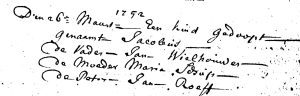 Den 26 Maart 1752 Een kind gedoopt
genaamt Jacobus
de Vader Jan Wielhouwer
de Moeder Maria
de Peter Jan Roeff